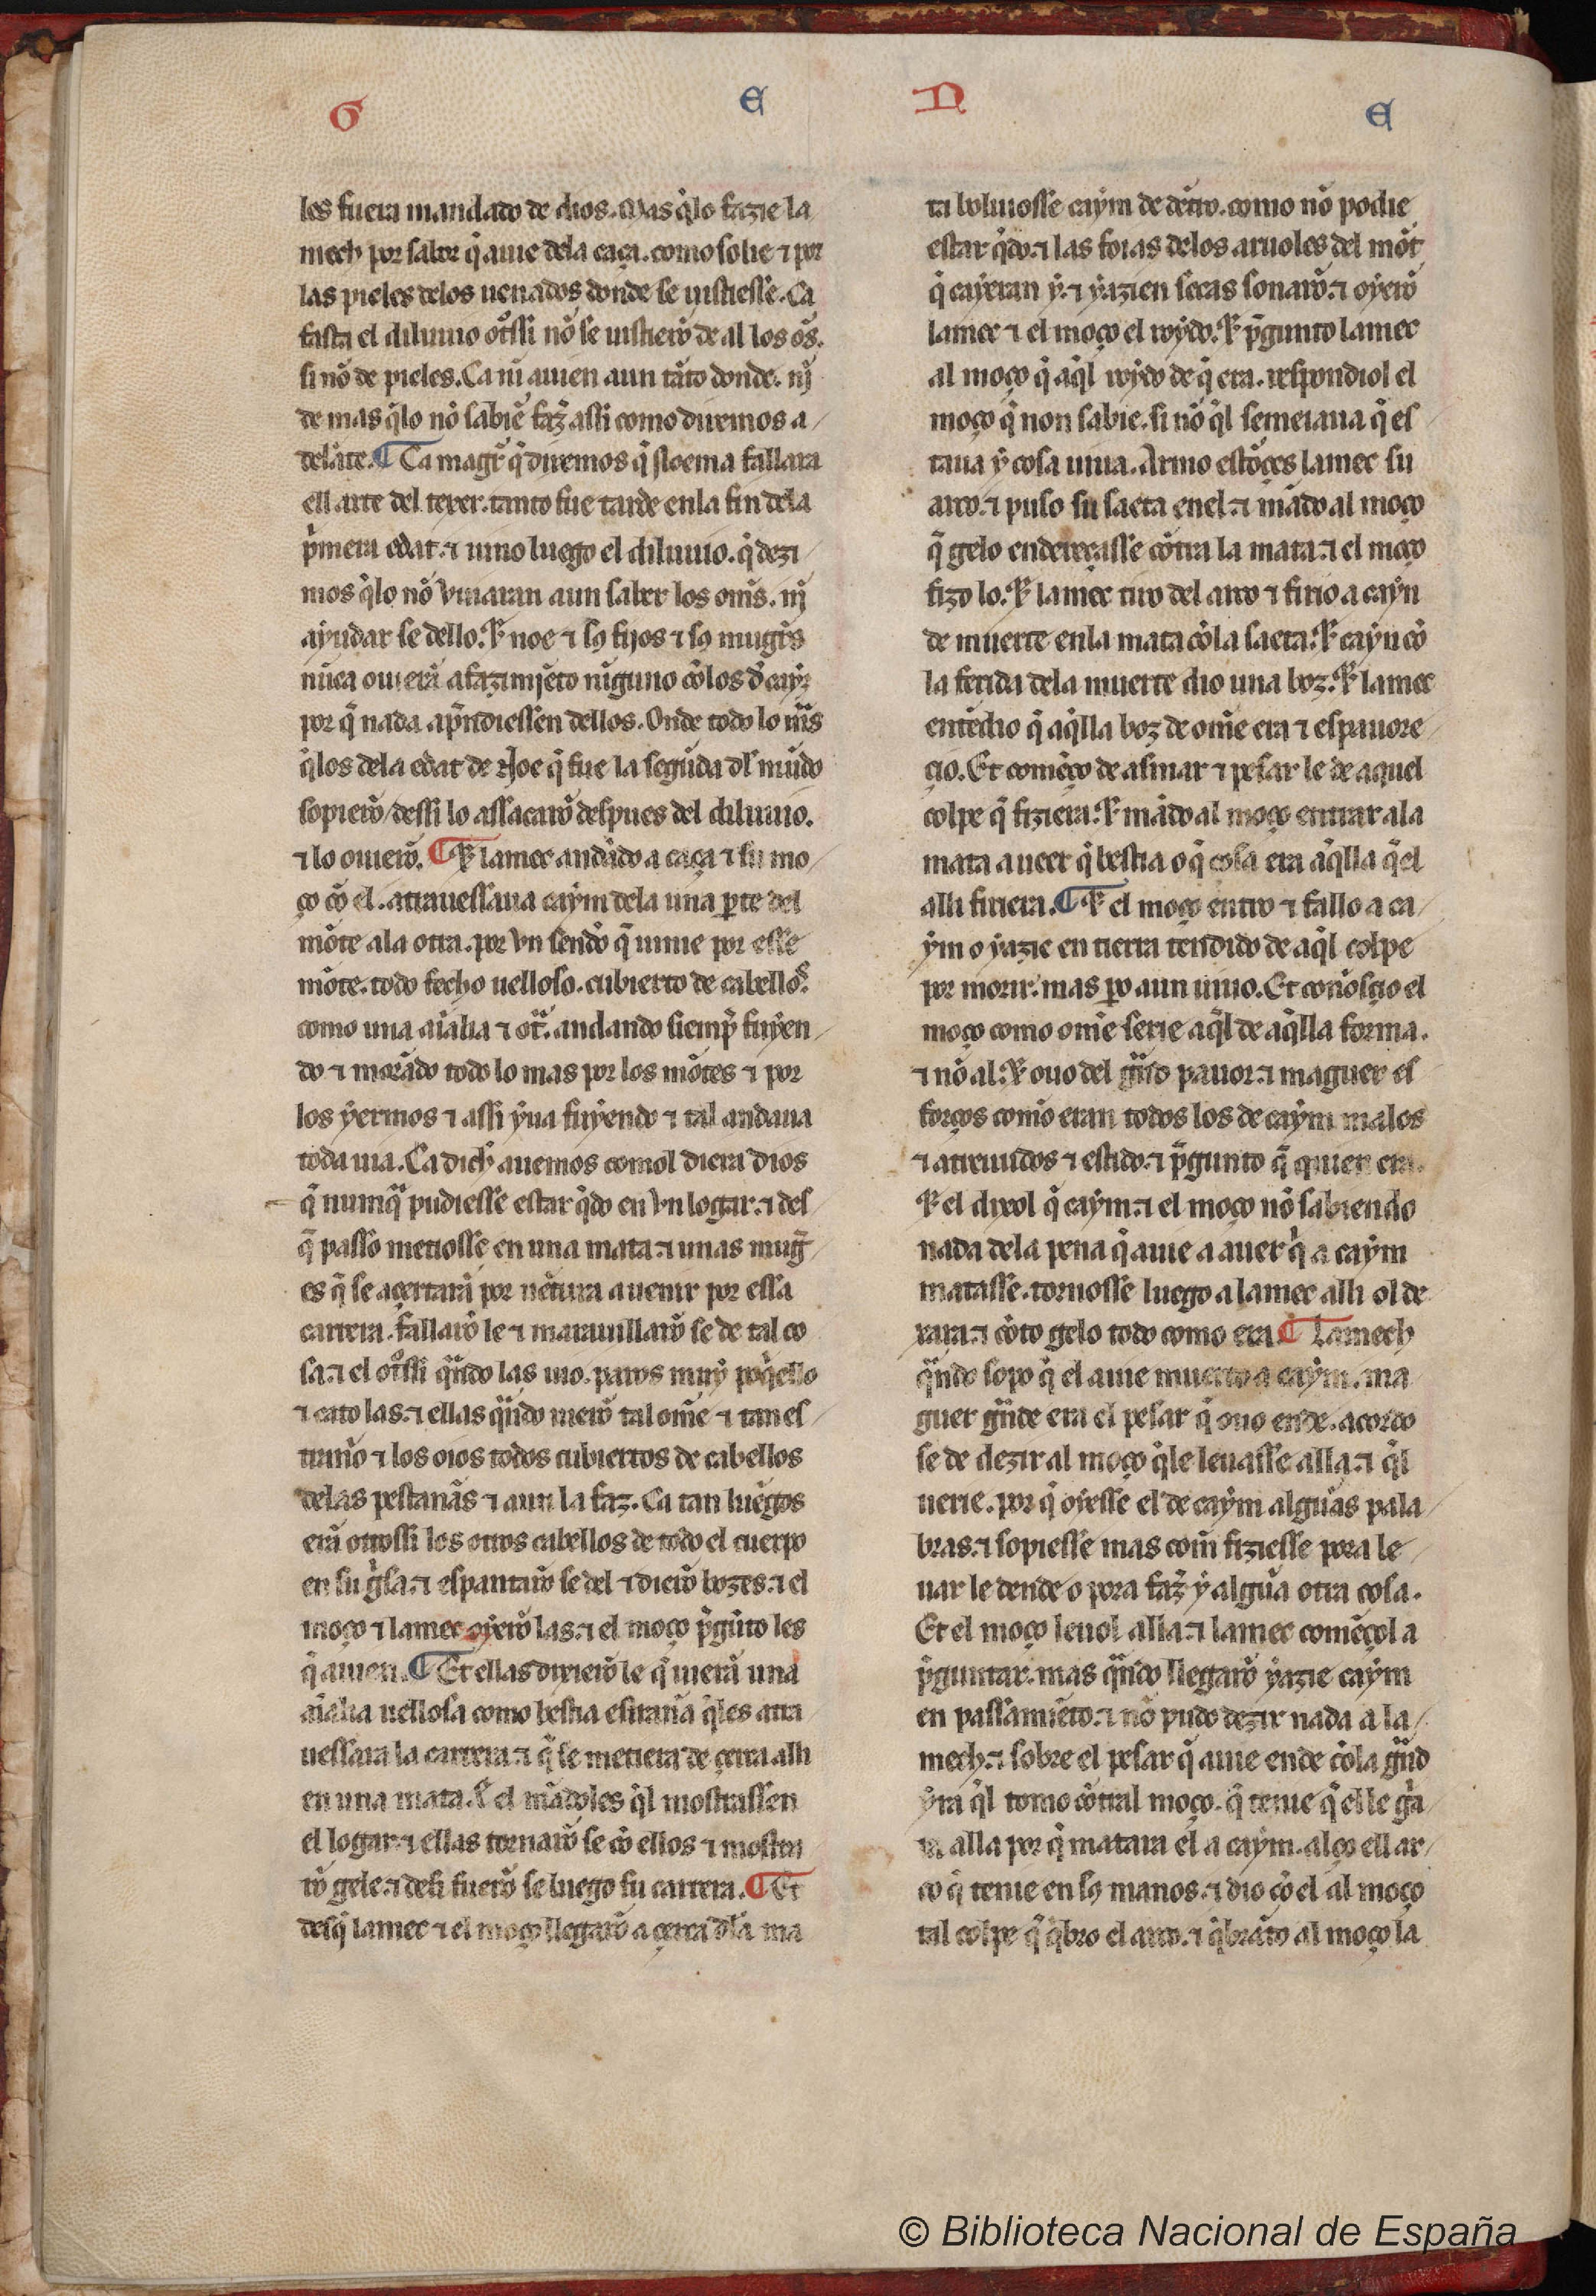 G E N E
les fuera mandado de dios. Mas q̃lo fazie la
mech por sabor q̃ auie dela caça. como solie ⁊ por
las pieles delos uenados donde se uistiesse. Ca
fasta el diluuio ot̃ssi nõ se uistierõ de al los oẽs.
si nõ de pieles. Ca nĩ auien aun tãto donde. nĩ
de mas q̃lo nõ sabiẽ faz̃ assi como diremos a
delãte. ¶ Ca mager̃ q̃ diremos q̃ Noema fallara
ell arte del texer. tanto fue tarde enla fin dela
p̃mera edat. ⁊ uino luego el diluuio. q̃ dezi
mos q̃lo nõ vuiaran aun saber los om̃s. nĩ
ayudar se dello. ⁊ noe ⁊ sꝯ fijos ⁊ sꝯ mugr̃s
nũca ouierã afazimjẽto nĩguno cõlos d̃ cayn
por q̃ nada ap̃ndiessen dellos. Onde todo lo mas
q̃los dela edat de Noe q̃ fue la segũda dl̃ mũdo
sopierõ / dessi lo assacarõ despues del diluuio.
⁊ lo ouierõ. ¶ ⁊ lamec andãdo a caça ⁊ su mo
ço cõ el. atrauessaua caym dela una ꝑte del
mõte ala otra. por vn sendo q̃ uinie por esse
mõte. todo fecho uelloso. cubierto de cabellos.
como una aĩalia ⁊ ot̃. andando siemp̃ fuyen
do ⁊ morãdo todo lo mas por los mõtes ⁊ por
los yermos ⁊ assi yua fuyendo ⁊ tal andaua
toda uia. Ca dich̃ auemos comol diera dios
q̃ numq̃ pudiesse estar q̃do en vn logar. ⁊ des
q̃ passo metiosse en una mata. ⁊ unas mug̃
es q̃ se açertarã por uẽtura a uenir por essa
carrera. fallarõ le ⁊ marauillarõ se de tal co
sa. ⁊ el ot̃ssi q̃ndo las uio. paros muy poq̃ello
⁊ cato las. ⁊ ellas q̃ndo uierõ tal om̃e ⁊ tan es
tranõ ⁊ los oios todos cubiertos de cabellos
delas pestanãs ⁊ aun la faz. Ca tan luẽgos
erã otrossi los otros cabellos de todo el cuerpo
en su g̃sa. ⁊ espantarõ se del ⁊ dierõ bozes. ⁊ el
moço ⁊ lamec oyerõ las. ⁊ el moço p̃gũto les
q̃ auien. ¶ Et ellas dixierõ le q̃ uierã una
aĩalia uellosa como bestia estranã q̃les atra
uessara la carrera. ⁊ q̃ se metiera de çerca alli
en una mata. ⁊ el mãdoles q̃l mostrassen
el logar. ⁊ ellas tornarõ se cõ ellos ⁊ mostra
rõ gele. ⁊ desi fuerõ se luego su carrera. ¶ Et
desq̃ lamec ⁊ el moço llegarõ a çerca dl̃a ma
ta boluiosse caym de dẽtro. como nõ podie
estar q̃do. ⁊ las foias delos aruoles del mõt
q̃ cayeran y. ⁊ yazien secas sonarõ. ⁊ oyerõ
lamec ⁊ el moço el roydo. ⁊ p̃gunto lamec
al moço q̃ aq̃l roydo de q̃ era. respondiol el
moço q̃ non sabie. si nõ q̃l semeiaua q̃ es
taua y cosa uiua. Armo estõçes lamec su
arco. ⁊ puso su saeta enel. ⁊ mãdo al moço
q̃ gelo endereçasse cõtra la mata. ⁊ el moço
fizo lo. ⁊ lamec tiro del arco ⁊ firio a cayn
de muerte enla mata cõla saeta. ⁊ cayn cõ
la ferida dela muerte dio una boz. ⁊ lamec
entẽdio q̃ aq̃lla boz de om̃e era ⁊ espauore
çio. Et comẽço de asmar ⁊ pesar le de aquel
colpe q̃ fiziera. ⁊ mãdo al moço entrar ala
mata a ueer q̃ bestia o q̃ cosa era aq̃lla q̃ el
alli firiera. ¶ ⁊ el moço entro ⁊ fallo a ca
ym o yazie en tierra tendido de aq̃l colpe
por morir. mas ꝑo aun uiuo. Et conõsçio el
moço como om̃e serie aq̃l de aq̃lla forma.
⁊ nõ al. ⁊ ouo del g̃ndo pauor. ⁊ maguer es
forços como eran todos los de caym malos
⁊ atreuudos ⁊ estido. ⁊ p̃gunto q̃ quien era.
⁊ el dixol q̃ caym. ⁊ el moço nõ sabiendo
nada dela pena q̃ auie a auer q̃ a caym
matasse. tornosse luego a lamec alli ol de
xara. ⁊ cõto gelo todo como era. ¶ Lamech
q̃ndo sopo q̃ el auie muerto a caym. ma
guer g̃nde era el pesar q̃ ouo ende. acordo
se de dezir al moço q̃le leuasse alla. ⁊ q̃l
uerie. por q̃ oyesse el de caym algunãs pala
bras. ⁊ sopiesse mas com̃ fiziesse pora le
uar le dende o pora faz̃ y algũa otra cosa.
Et el moço leuol alla. ⁊ lamec comẽçol a
p̃guntar. mas q̃ndo llegarõ yazie caym
en passamiẽto. ⁊ nõ pudo dezir nada a la
mech. ⁊ sobre el pesar q̃ auie ende cõla g̃nd
yra q̃l tomo cõtral moço. q̃ tenie q̃ elle g̃a
ra alla por q̃ matara el a caym. alço ell ar
co q̃ tenie en sꝯ manos. ⁊ dio cõ el al moço
tal colpe q̃ q̃bro el arco. ⁊ q̃brãto al moço la
© Biblioteca Nacional de España